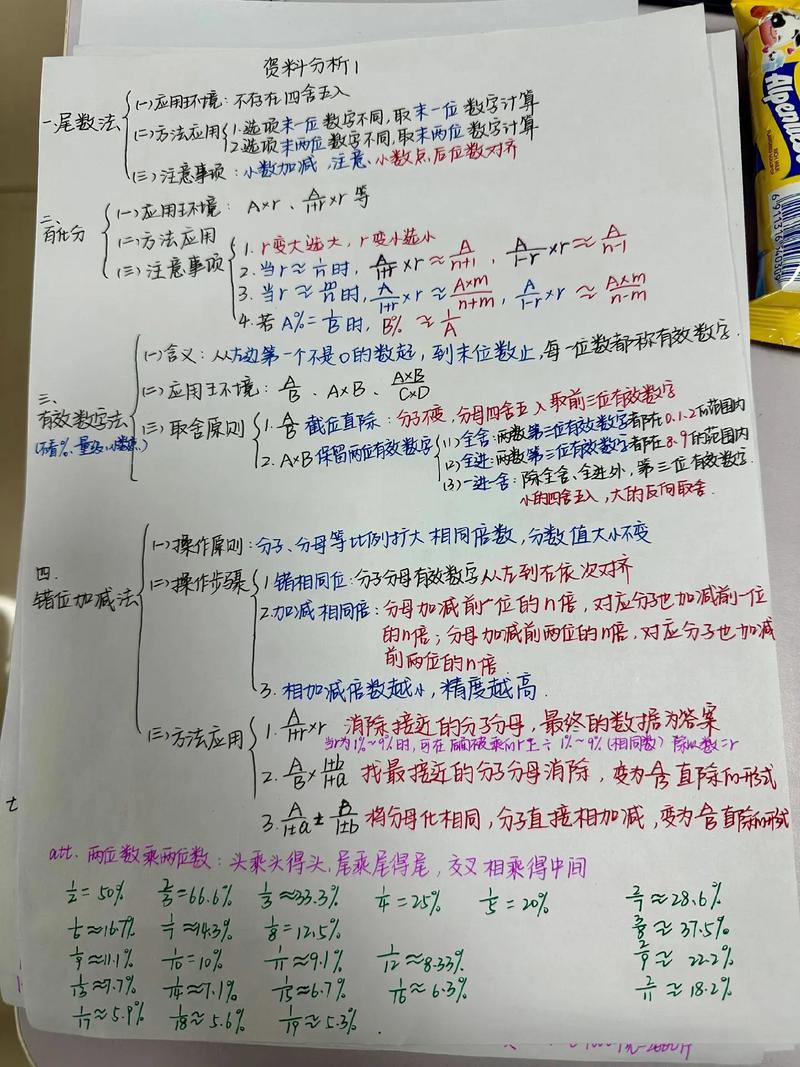 资料分析1
一.尾数法
(一)应用环境：不存在四舍五入
(二)方法应用
1.选项末一位数字不同,取末一位数字计算
2.选项末两位数字不同,取末两位数字计算
(三)注意事项：小数加减,注意、小数点后位数对齐
二、百化分
(一)应用环境：A×r、A/(1+r)×r 等
(二)方法应用
(三)注意事项
1. r变大选大，r变小选小
2. 当r≈1/n时，A/(1+r)×r≈A/(n+1)，A/(1-r)×r≈A/(n-1)
3. 当r≈m/n时，A/(1+r)×r≈(A×m)/(n+m)，A/(1-r)×r≈(A×m)/(n-m)
4.若A%=1/B时，B%≈1/A
三、有效数字法
(不看%、量级、小数点、)
(一)含义：从左边第一个不是0的数起，到末位数止，每一位数都称有效数字.
(二)应用环境：A/B、A×B、(A×B)/(C×D)
(三)取舍原则
1. A/B 截位直除：分子不变，分母四舍五入取前三位有效数字
2. A×B保留两位有效数字
(1)全舍：两数第三位有效数字都在0.1.2的范围内
(2)全进：两数第三位有效数字都在8.9的范围内
(3)一进一舍：除全舍、全进外，第三位有效数字.
小的四舍五入，大的反向取舍.
四.错位加减法
(一)操作原则：分子、分母等比例扩大相同倍数，分数值大小不变
(二)操作步骤
1.错相同位：分子分母有效数字从左到右依次对齐
2.加减相同倍：分母加减前一位的n倍，对应分子也加减前一位
的n倍；分母加减前两位的n倍，对应分子也加减
前两位的n倍
3. 相加减倍数越小，精度越高.
(三)方法应用
1. A/(1+r)×r 消除接近的分子分母，最终的数据为答案
当r为1%~9%时,可在 ÷1%~9%(相同数) =r
2. A/B×(1+b)/(1+a) 找最接近的分子分母消除，变为A/B直除的形式
3. A/(1±a)±B/(1±b) 将分母化相同，分子直接相加减，变为A/B直除的形式
att. 两位数乘两位数：头乘头得头,尾乘尾得尾，交叉相乘得中间
1/2=50% 2/3=66.6% 1/3≈33.3% 1/4=25% 1/5=20% 2/7≈28.6%
1/6≈16.7% 1/7≈14.3% 1/8=12.5% 3/8≈37.5%
1/9≈11.1% 1/10=10% 1/11≈9.1% 1/12≈8.33% 2/9≈22.2%
1/13≈7.7% 1/14≈7.1% 1/15≈6.7% 1/16≈6.3% 2/11≈18.2%
1/17≈5.9% 1/18≈5.6% 1/19≈5.3%.
t
Alpenlie
RICH MILK